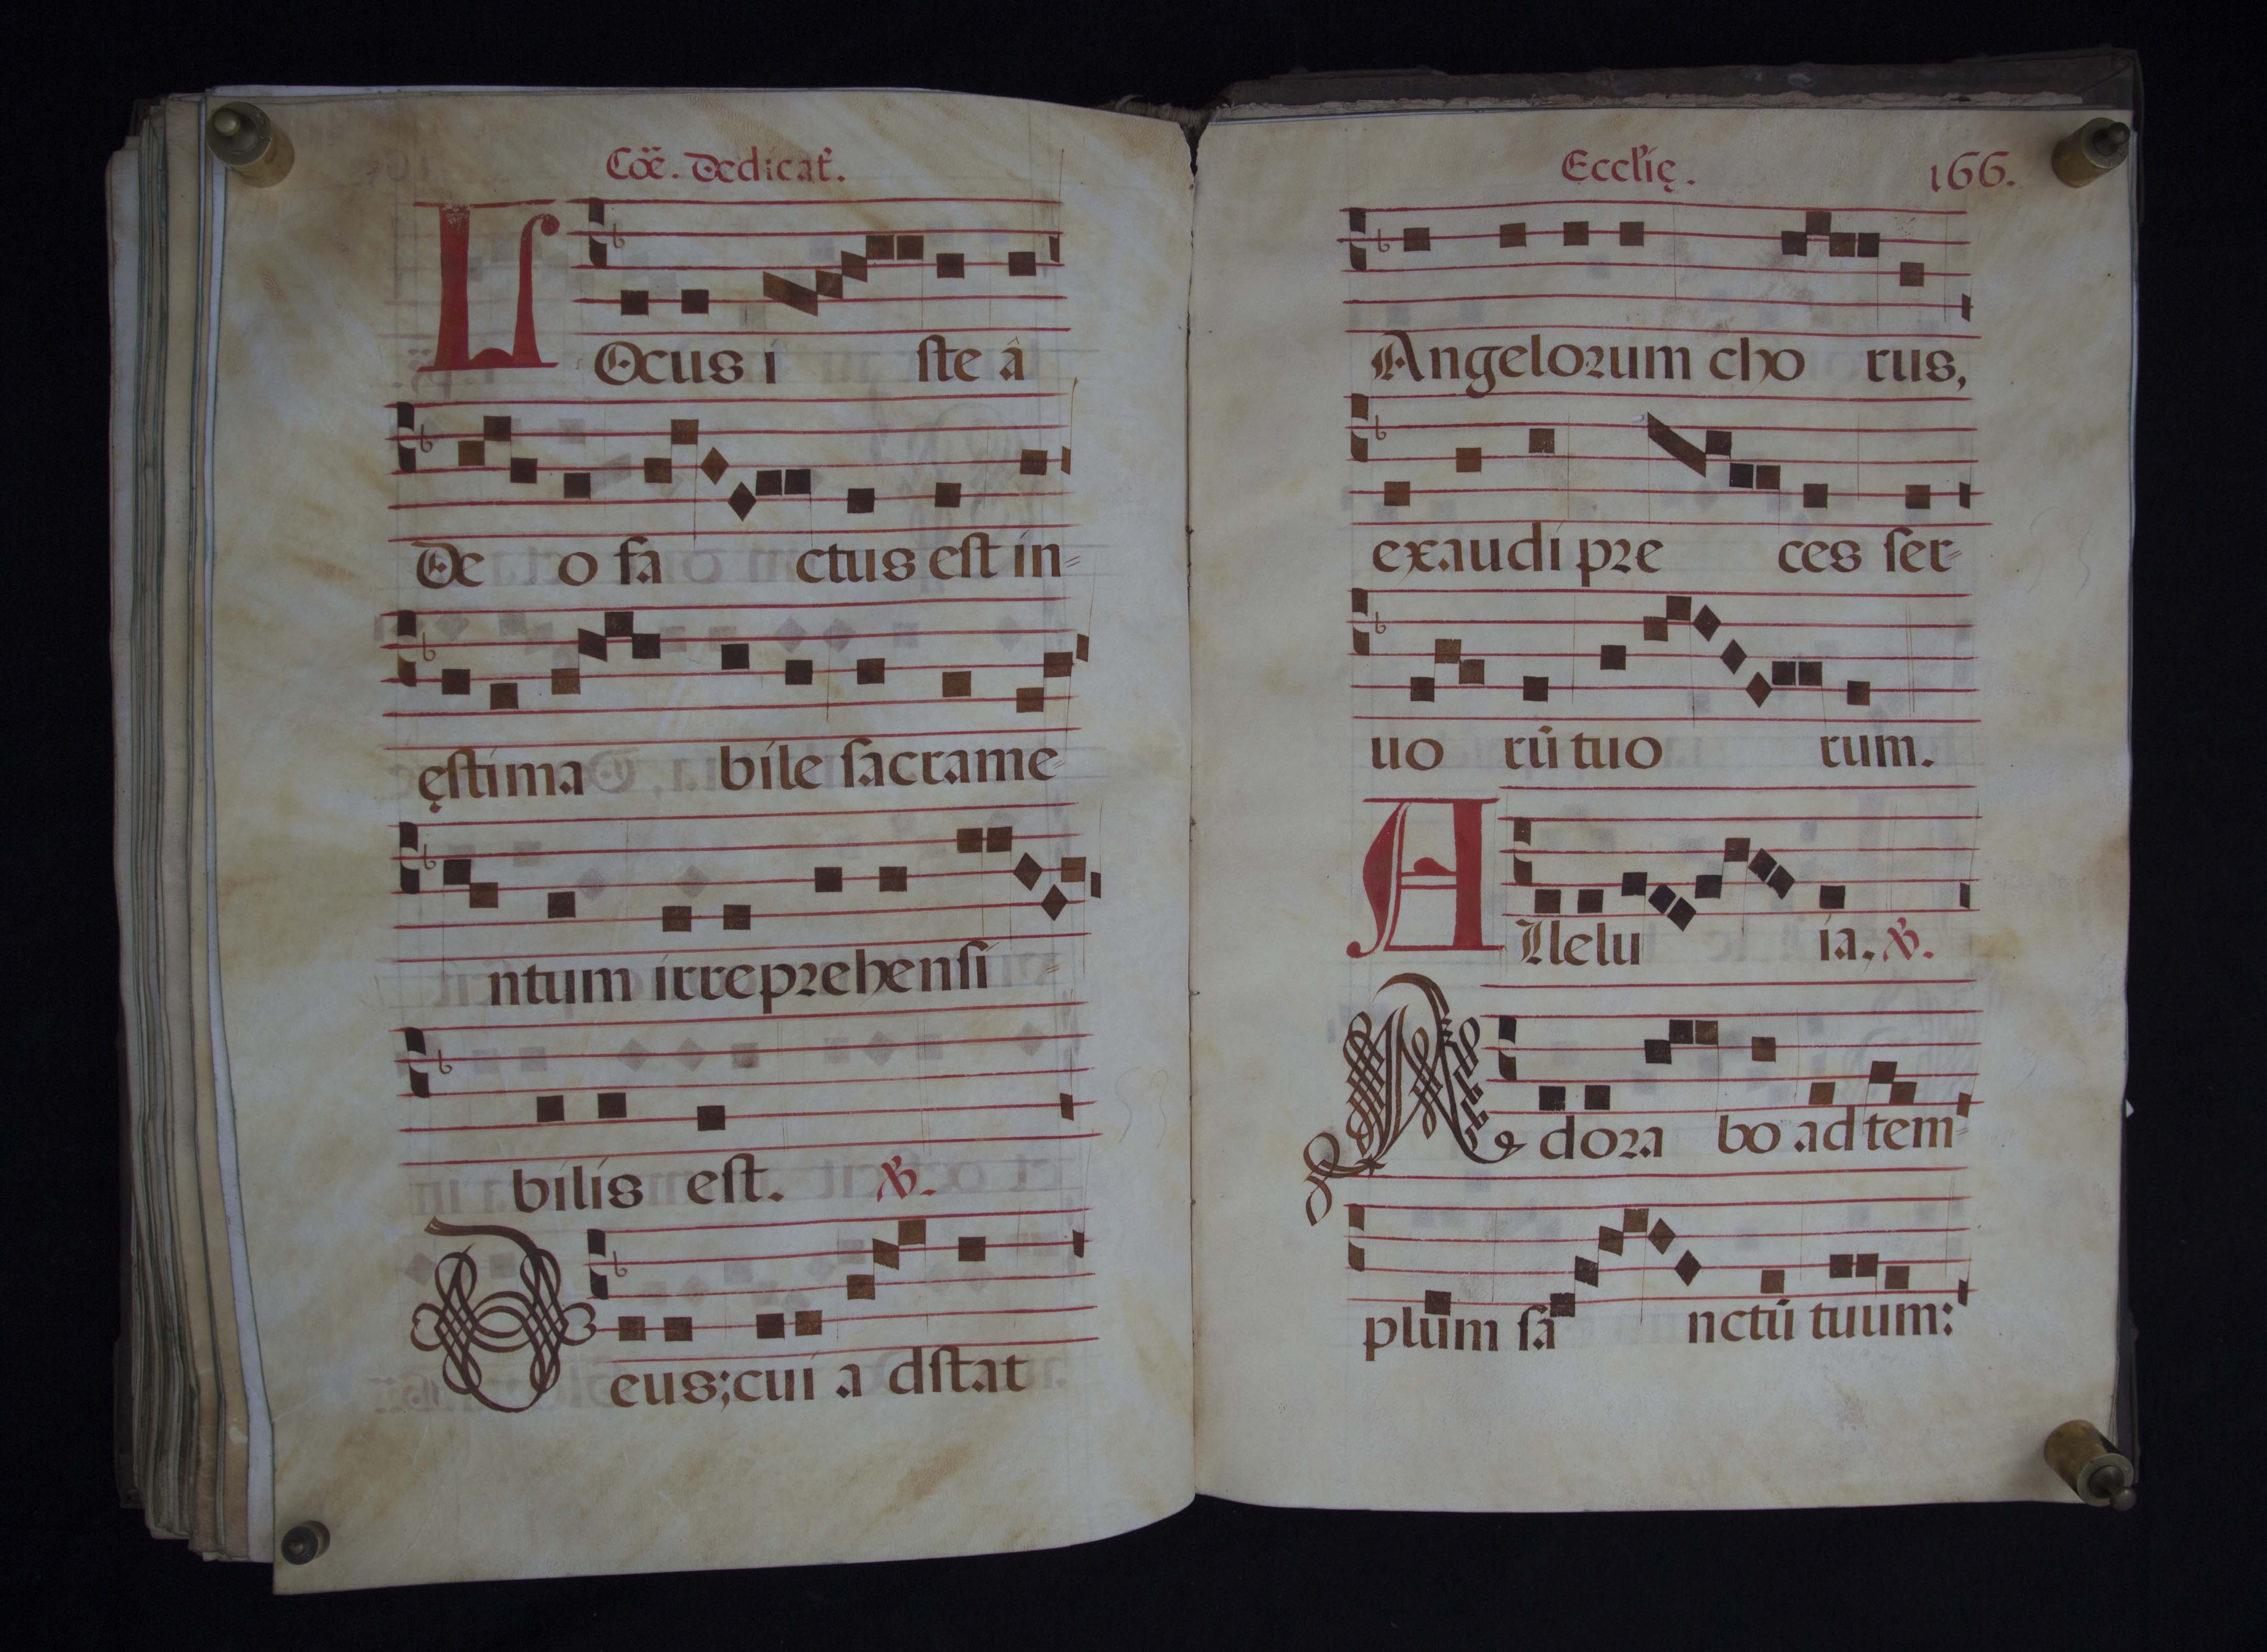 Cōē. Dedicat̄.
LOcus i ste â
De o fa ctus est in=
ęstima bile sacrame=
ntum irreprehensi =
bilis est. ℣.
Deus; cui a dstat
Eccl'ię. 166.
Angelorum cho rus,
exaudi pre ces ser=
uo rū tuo rum.
Allelu ia. ℣.
Adora bo ad tem=
plum sa nctū tuum: